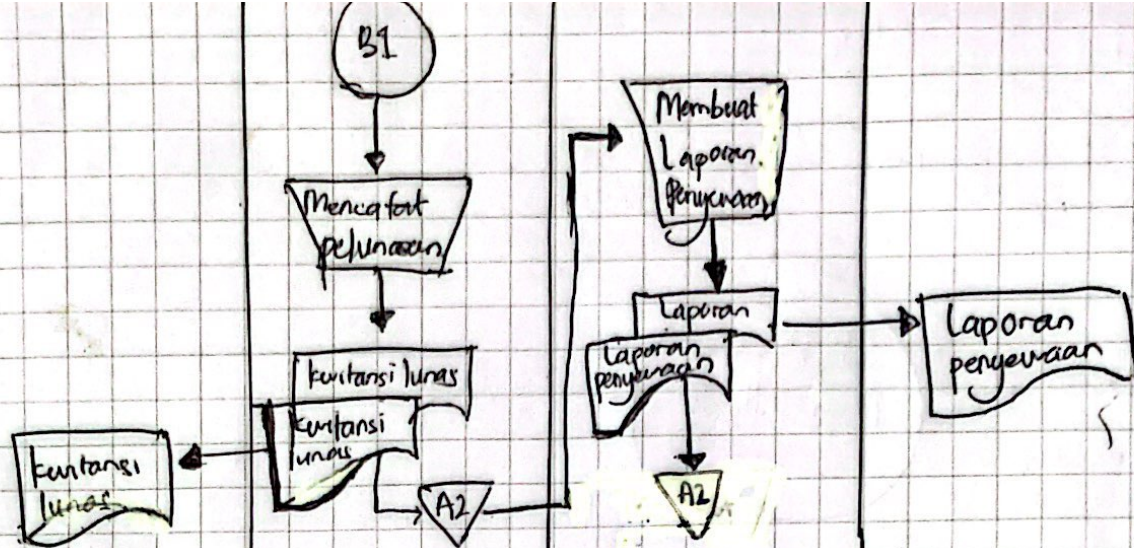 B1
Mencatat
pelunasan
kwitansi lunas
kwitansi
lunas
kwitansi
lunas
A2
Membuat
Laporan
penyewaan
Laporan
Laporan
penyewaan
A2
Laporan
penyewaan